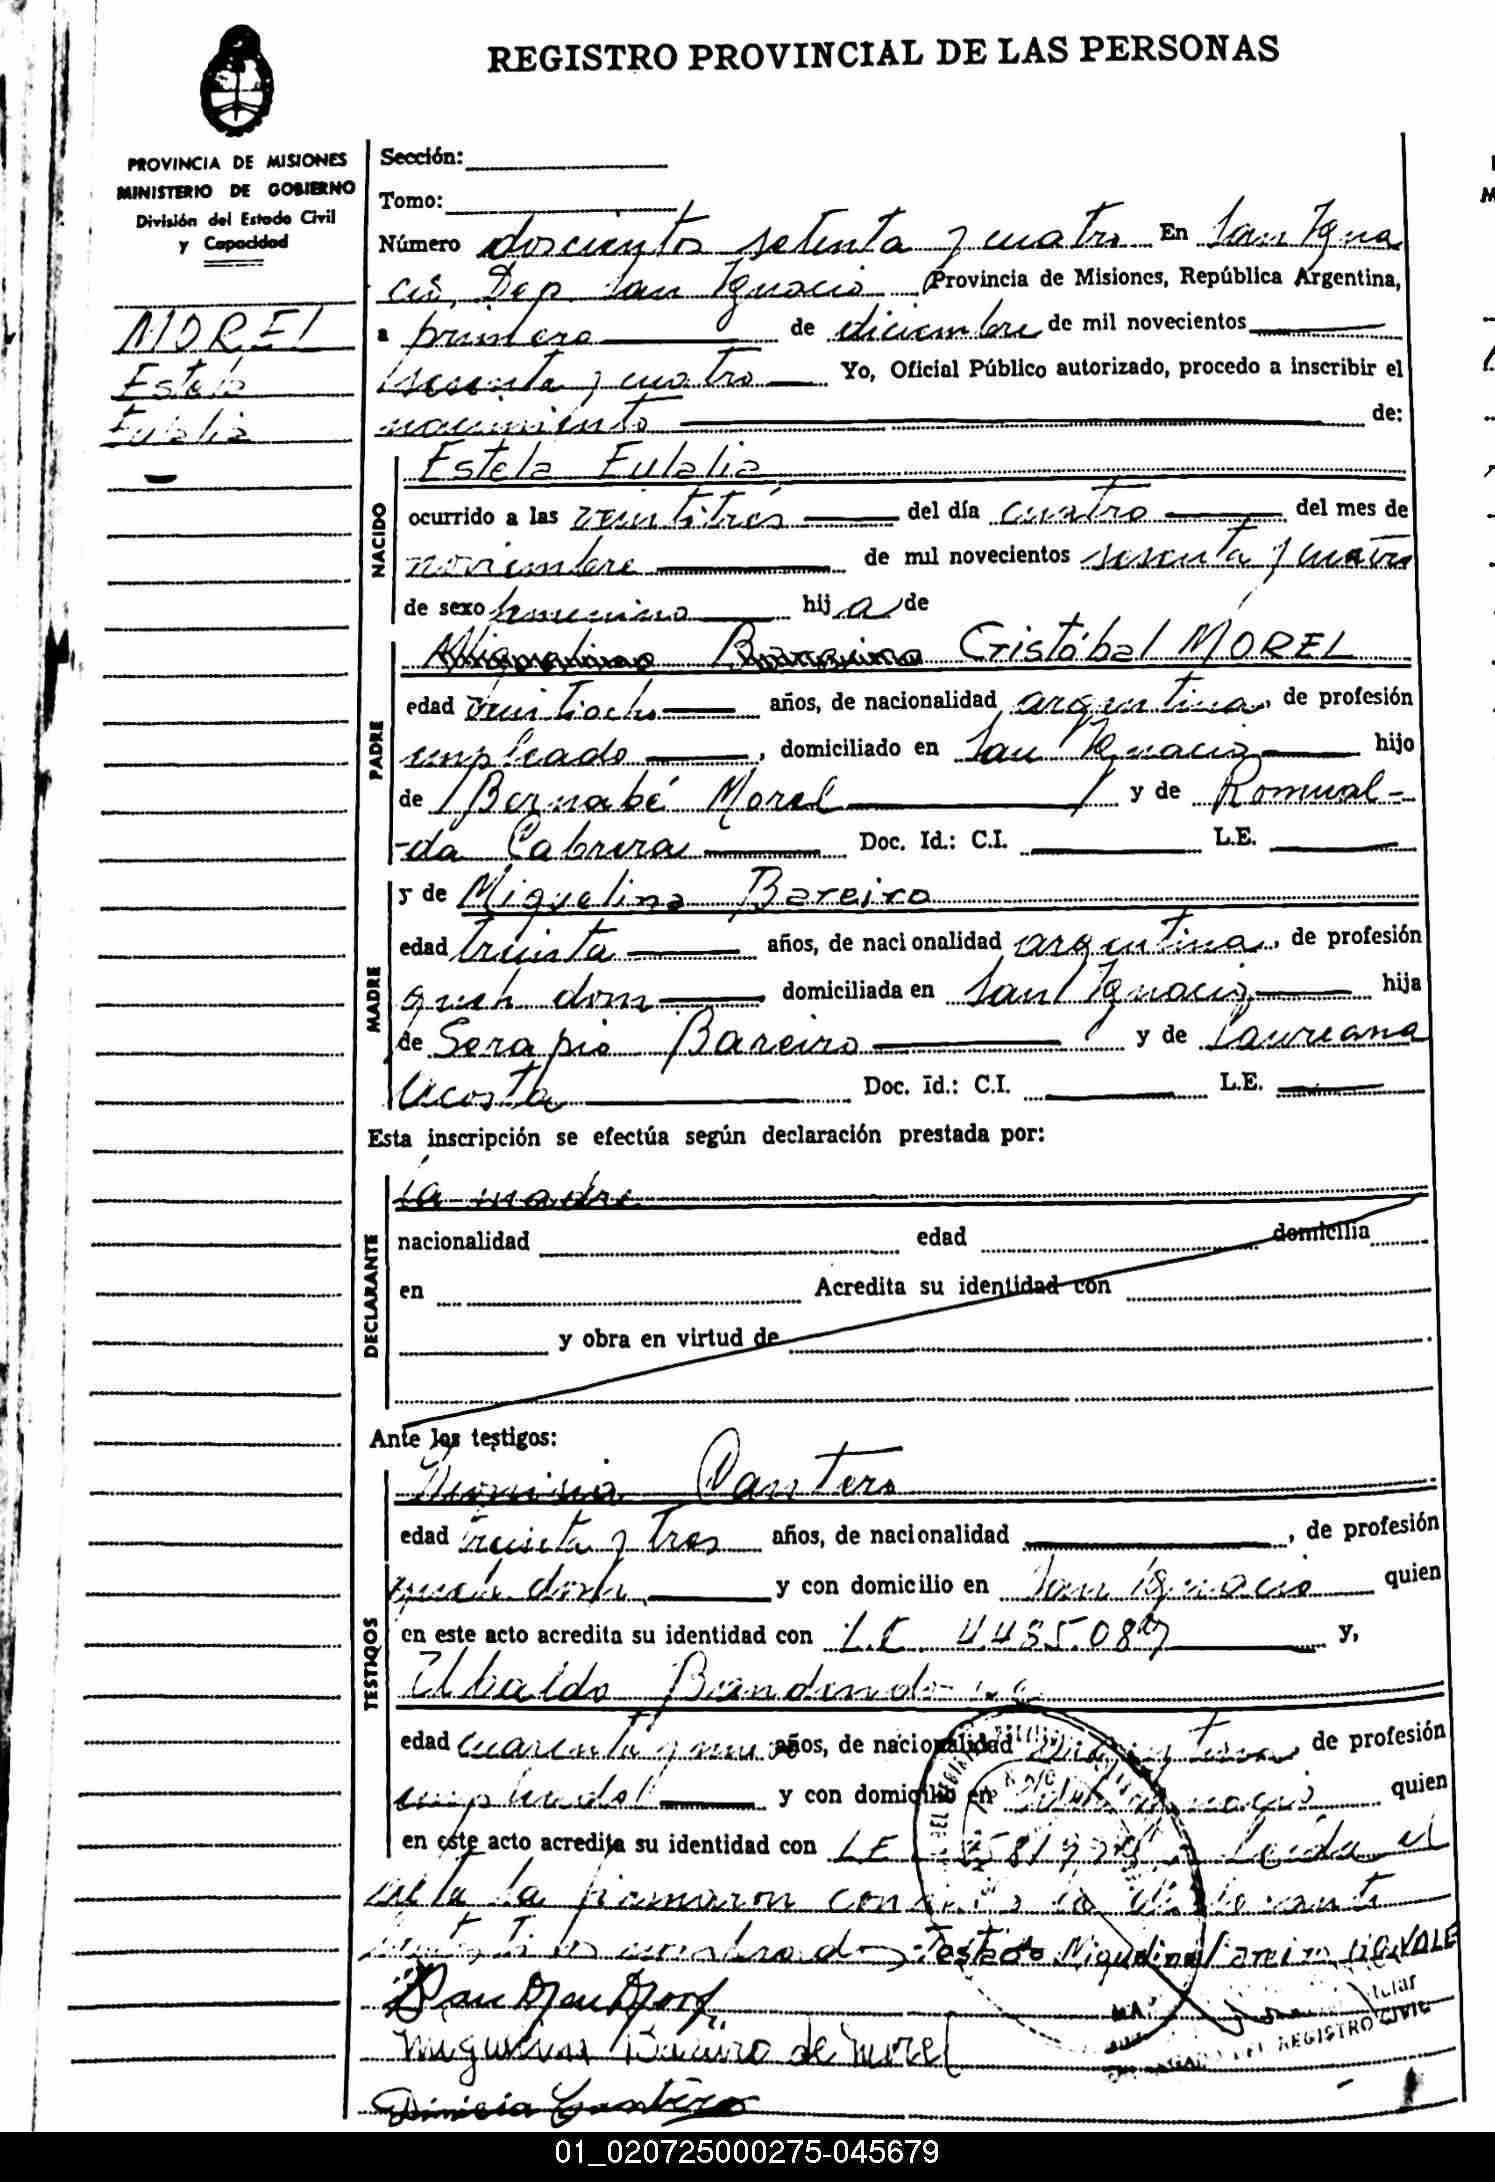 REGISTRO PROVINCIAL DE LAS PERSONAS
PROVINCIA DE MISIONES
MINISTERIO DE GOBIERNO
División del Estado Civil
y Capacidad
MOREL
Estela
Eulalia
Sección:
Tomo:
Número doscientos setenta y cuatro En San Igna
cio, Dep. San Ignacio Provincia de Misiones, República Argentina,
a primero de diciembre de mil novecientos
sesenta y cuatro Yo, Oficial Público autorizado, procedo a inscribir el
nacimiento de:
NACIDO
Estela Eulalia
ocurrido a las veintitrés del día cuatro del mes de
noviembre de mil novecientos sesenta y cuatro
de sexo femenino hija de
PADRE
Cristóbal MOREL
edad veintiocho años, de nacionalidad argentina, de profesión
empleado, domiciliado en San Ignacio hijo
de Bernabé Morel y de Romual-
-da Cabrera Doc. Id.: C.I. L.E.
MADRE
y de Miguelina Bareiro
edad treinta años, de nacionalidad argentina, de profesión
queh dom domiciliada en San Ignacio hija
de Serapio Bareiro y de Laureana
Acosta Doc. Id.: C.I. L.E.
Esta inscripción se efectúa según declaración prestada por:
DECLARANTE
la madre
nacionalidad edad domicilia
en Acredita su identidad con
y obra en virtud de
Ante los testigos:
TESTIGOS
Dionisia Cantero
edad treinta y tres años, de nacionalidad , de profesión
queh dom y con domicilio en San Ignacio quien
en este acto acredita su identidad con L.C. y,
Ubaldo
edad cuarenta y años, de nacionalidad argentina, de profesión
empleado y con domicilio en San Ignacio quien
en este acto acredita su identidad con L.E. Leída el
acta la firmaron con la
testigos Testado Miguelina Bareiro NO VALE
Miguelina Bareiro de Morel
Dionicia Cantero
REGISTRO CIVIL
01_020725000275-045679